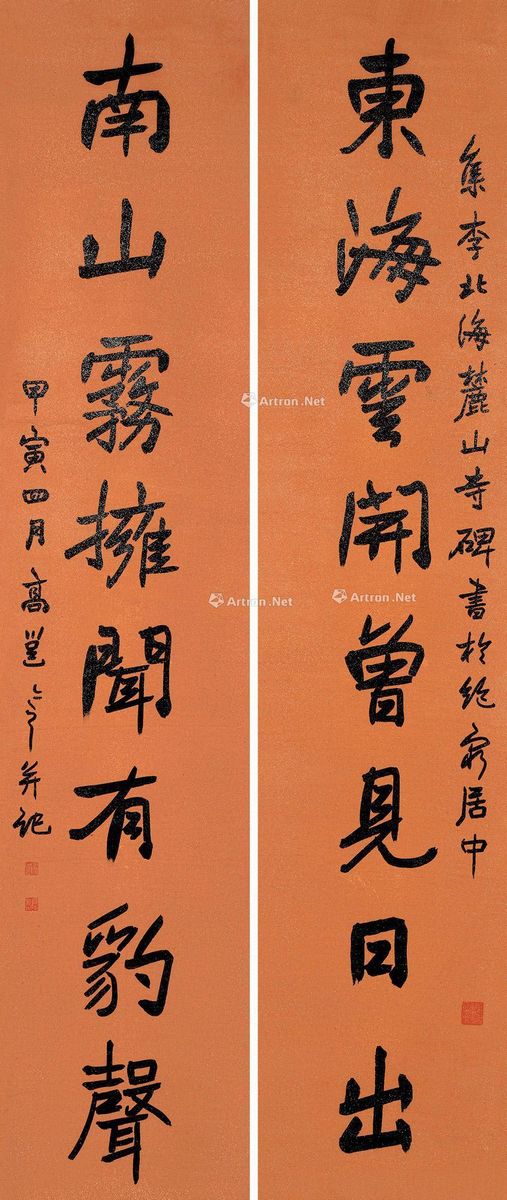 集李北海麓山寺碑書於窮居中
東海雲開曾見日出
南山霧擁聞有豹聲
甲寅四月高邕并記
Artron.Net
Artron.Net
Artron.Net
Artron.Net